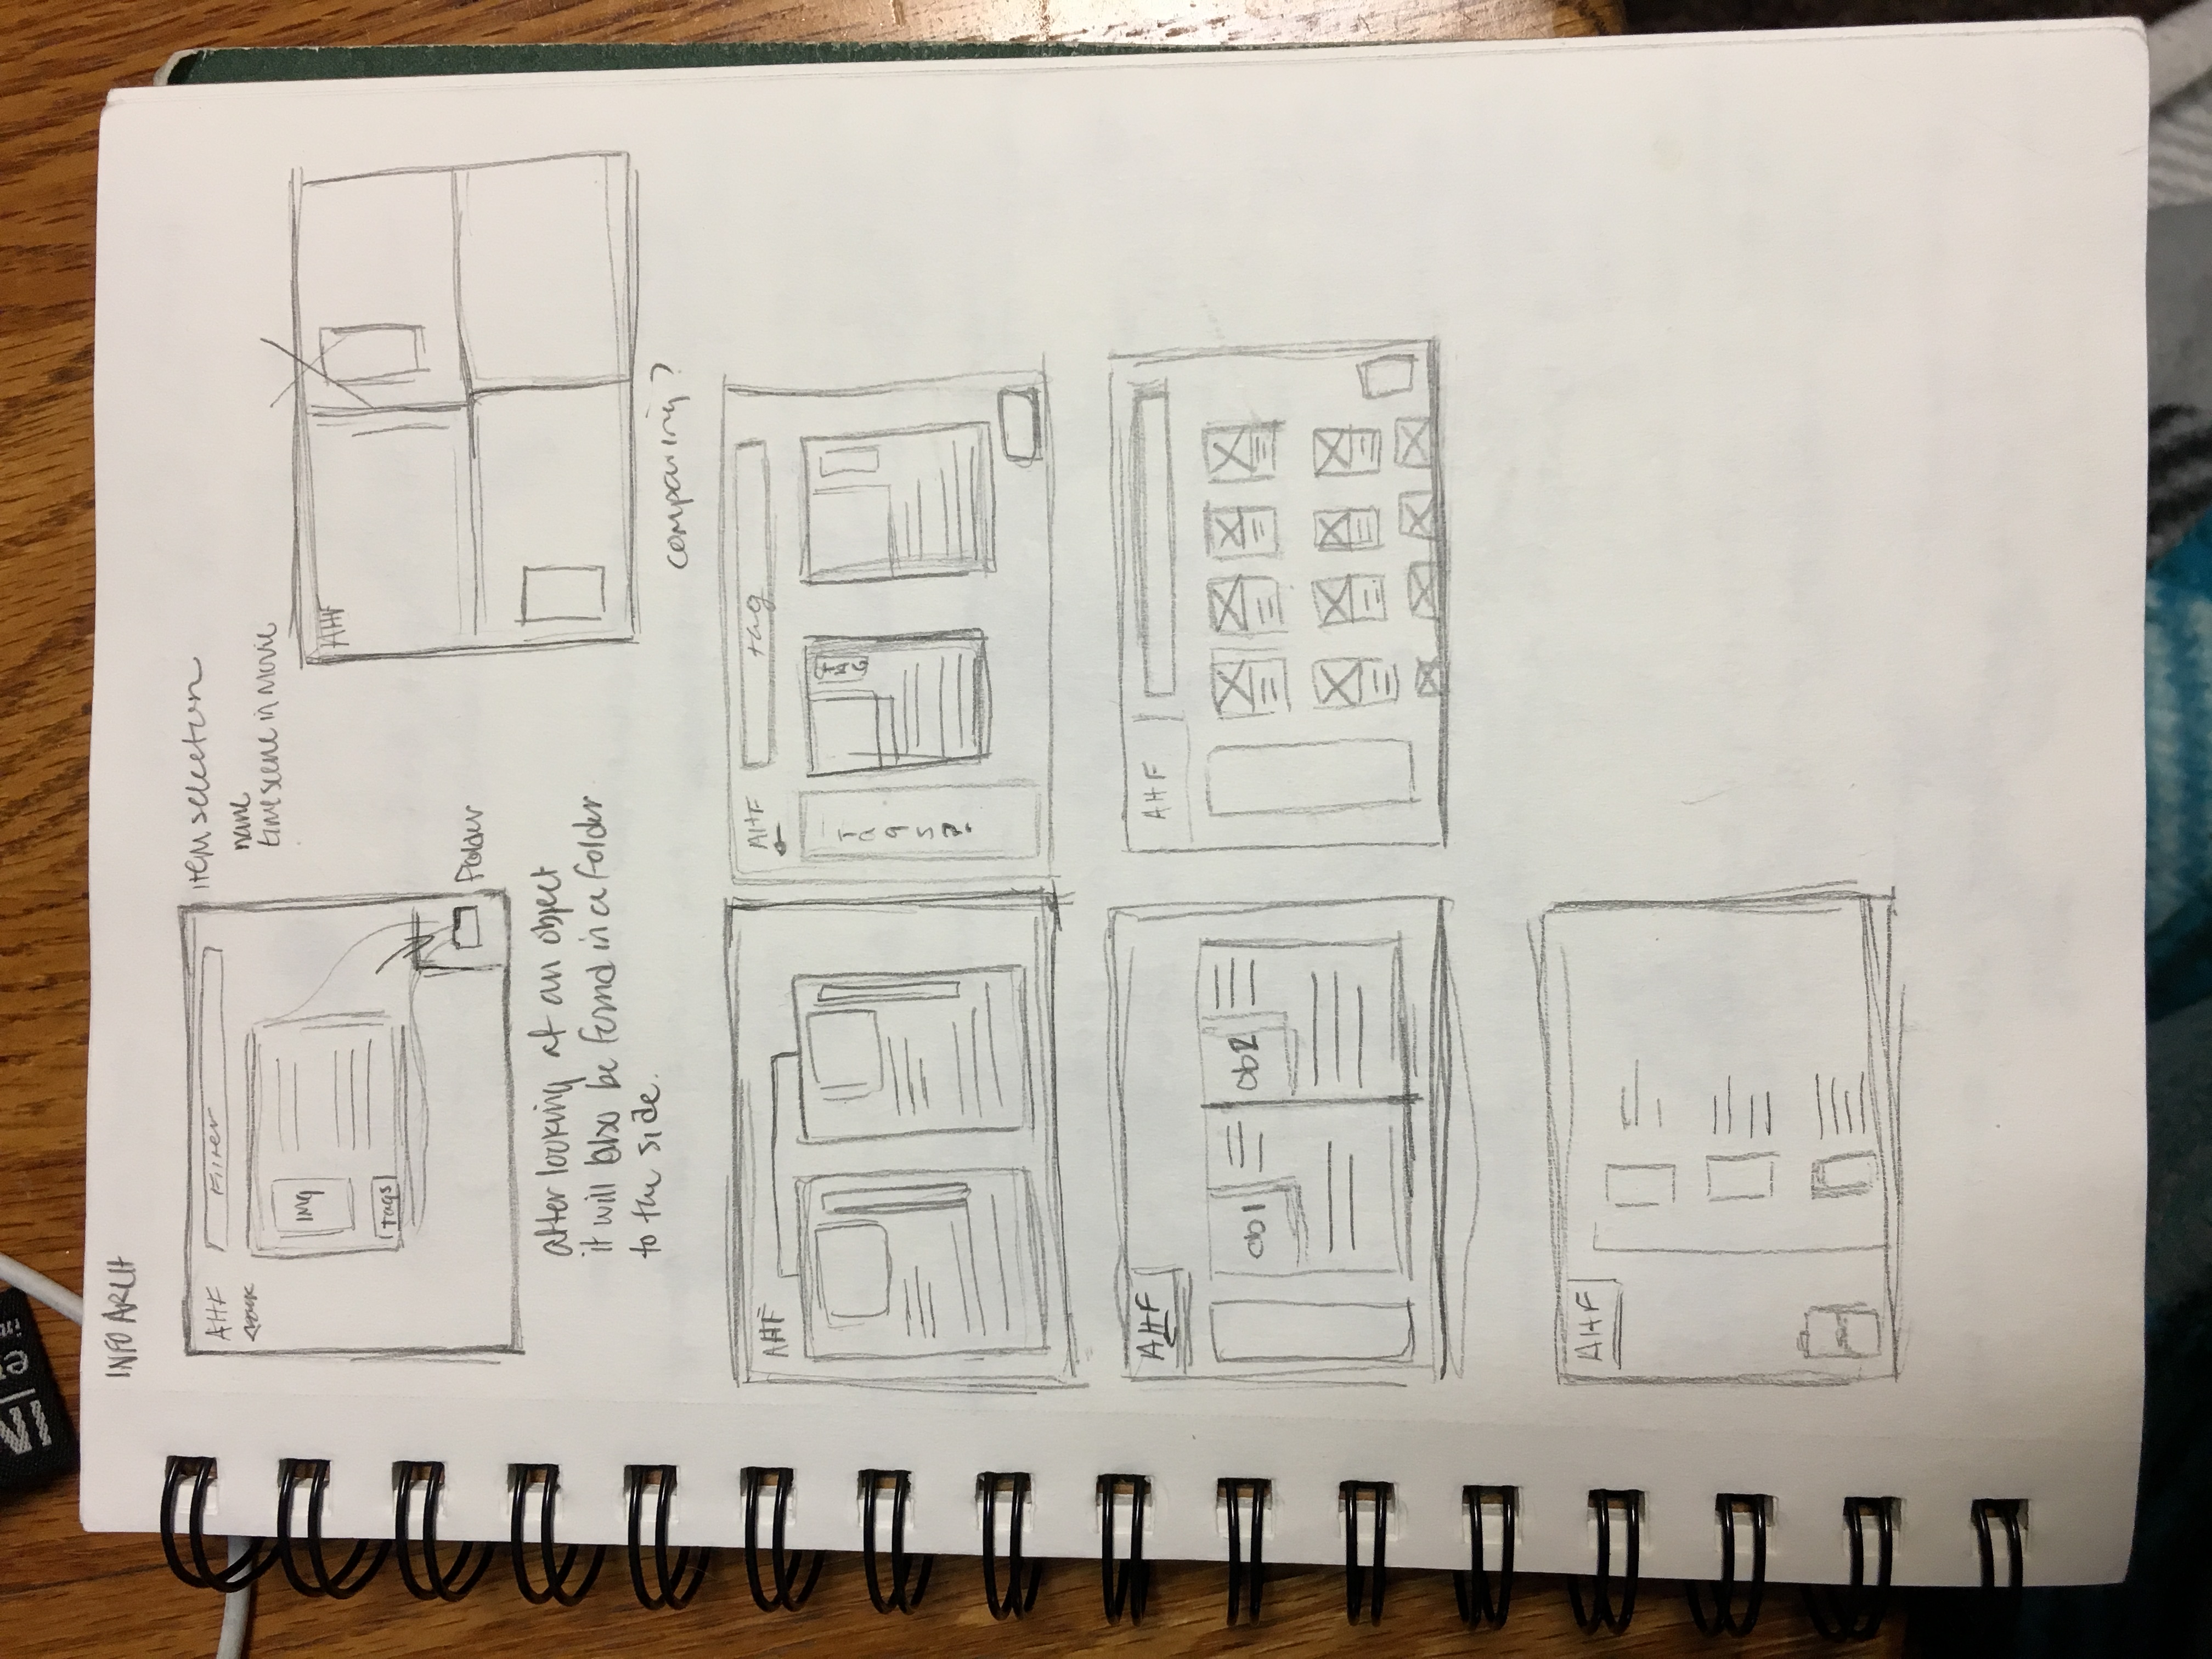 INFO ARCH
AHF
Filter
back
Img
tags
item selection
name
time scene in movie
Folder
after looking at an object
it will also be found in a folder
to the side.
AHF
comparing?
AHF
AHF
tag
Tags?
TAG
AHF
ob1
ob2
AHF
AHF